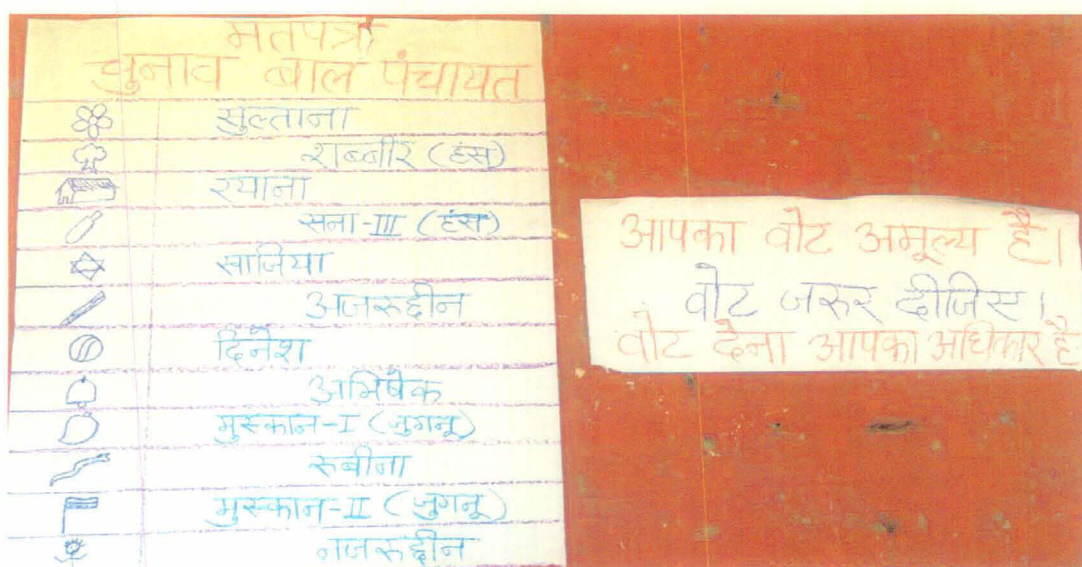 मतपत्र
चुनाव बाल पंचायत
सुल्ताना
शब्बीर (हंस)
रयाना
सना-III (हंस)
साजिया
अजरुद्दीन
दिनेश
अभिषेक
मुस्कान-I (जुगनू)
रुबीना
मुस्कान-II (जुगनू)
नजरुद्दीन
आपका वोट अमूल्य है।
वोट जरुर दीजिए।
वोट देना आपका अधिकार है